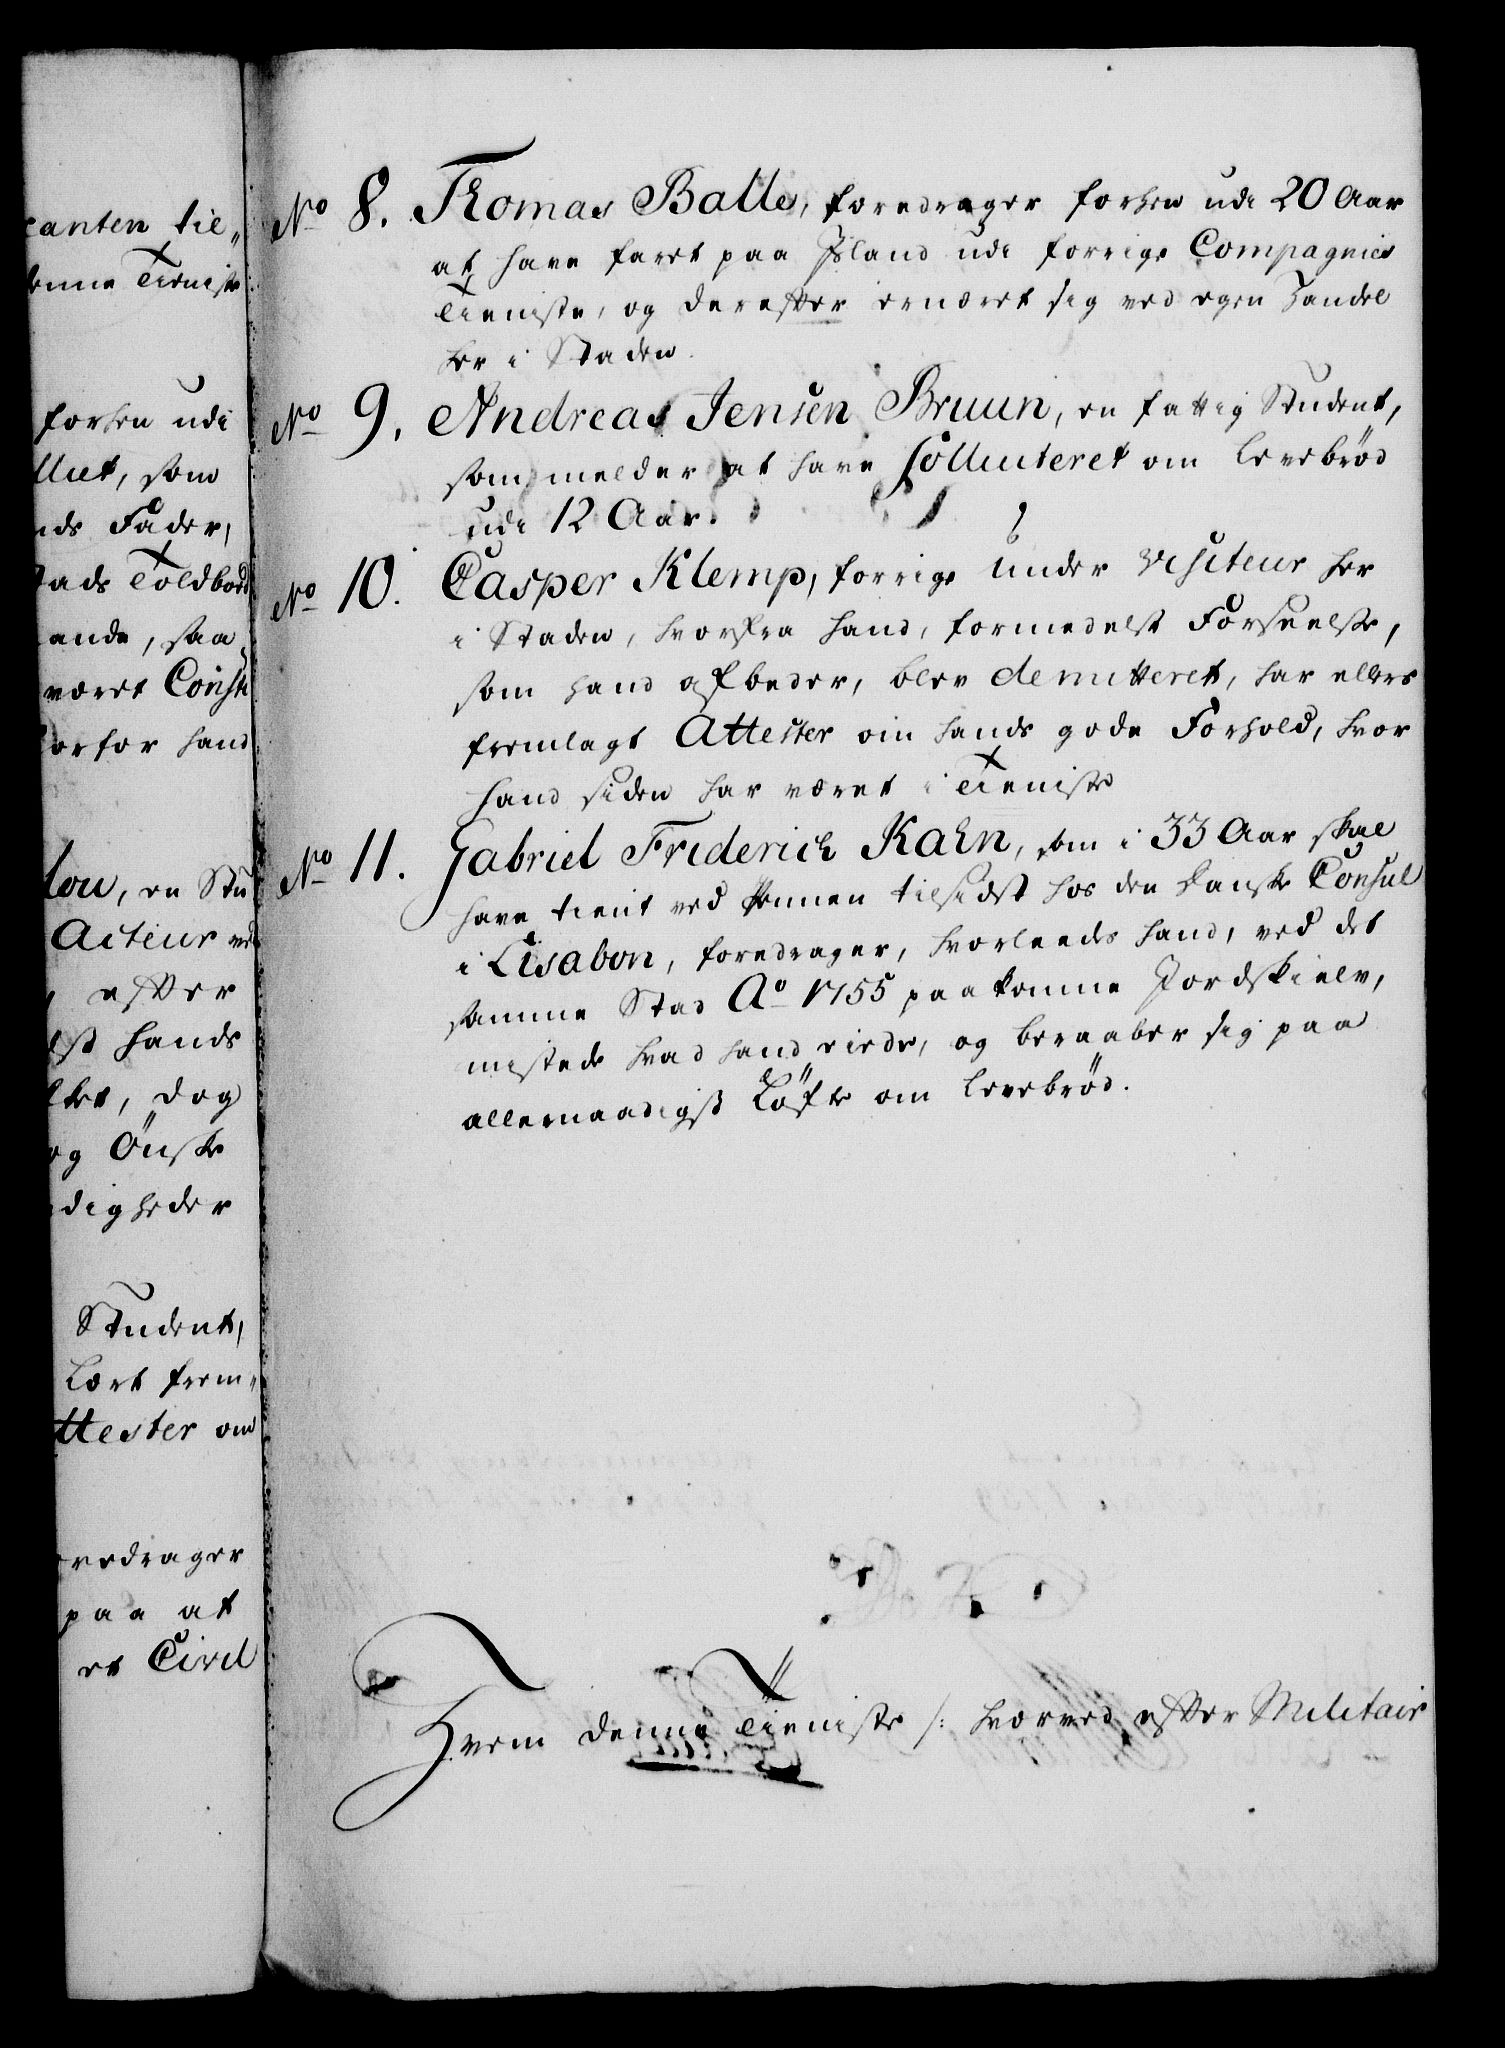 canten til„
denne Tieniste
forhen udi
llict, som
nds Fader,
Stads Toldbod
ande, saa
været Consti
for hand
lou, en Stu
Acteur ved
, efter
lst hands
lket, dog
og Ønske
digheder
Student,
Lært frem„
ttester om
oredrager
paa at
et Civil
No 8. Thomas Balle, foredrager forhen udi 20 Aar
at have faret paa Island udi forrige Compagnies
Tieniste, og derefter ernæret sig ved egen Handel
her i Staden.
No 9. Andreas Jensen Bruun, en fattig Student,
som melder at have solliciteret om Levebrød
udi 12 Aar.
No 10. Casper Klemp, forrige Under Visiteur her
i Staden, hvorfra hand, formedelst Forseelse,
som hand afbeder, blev demitteret, har ellers
fremlagt Attester om hands gode Forhold, hvor
hand siden har været i Tieniste
No 11. Gabriel Friderich Kahn, som i 33 Aar skal
have tient ved Pennen tilsidst hos den Danske Consul
i Lisabon, foredrager, hvorleedes hand, ved det
samme Stad Ao 1755 paakomne Jordskielv,
mistede hvad hand eiede, og beraaber sig paa
allernaadigst Løfte om Levebrød.
Hvem denne Tieniste /: hvorved efter Militair